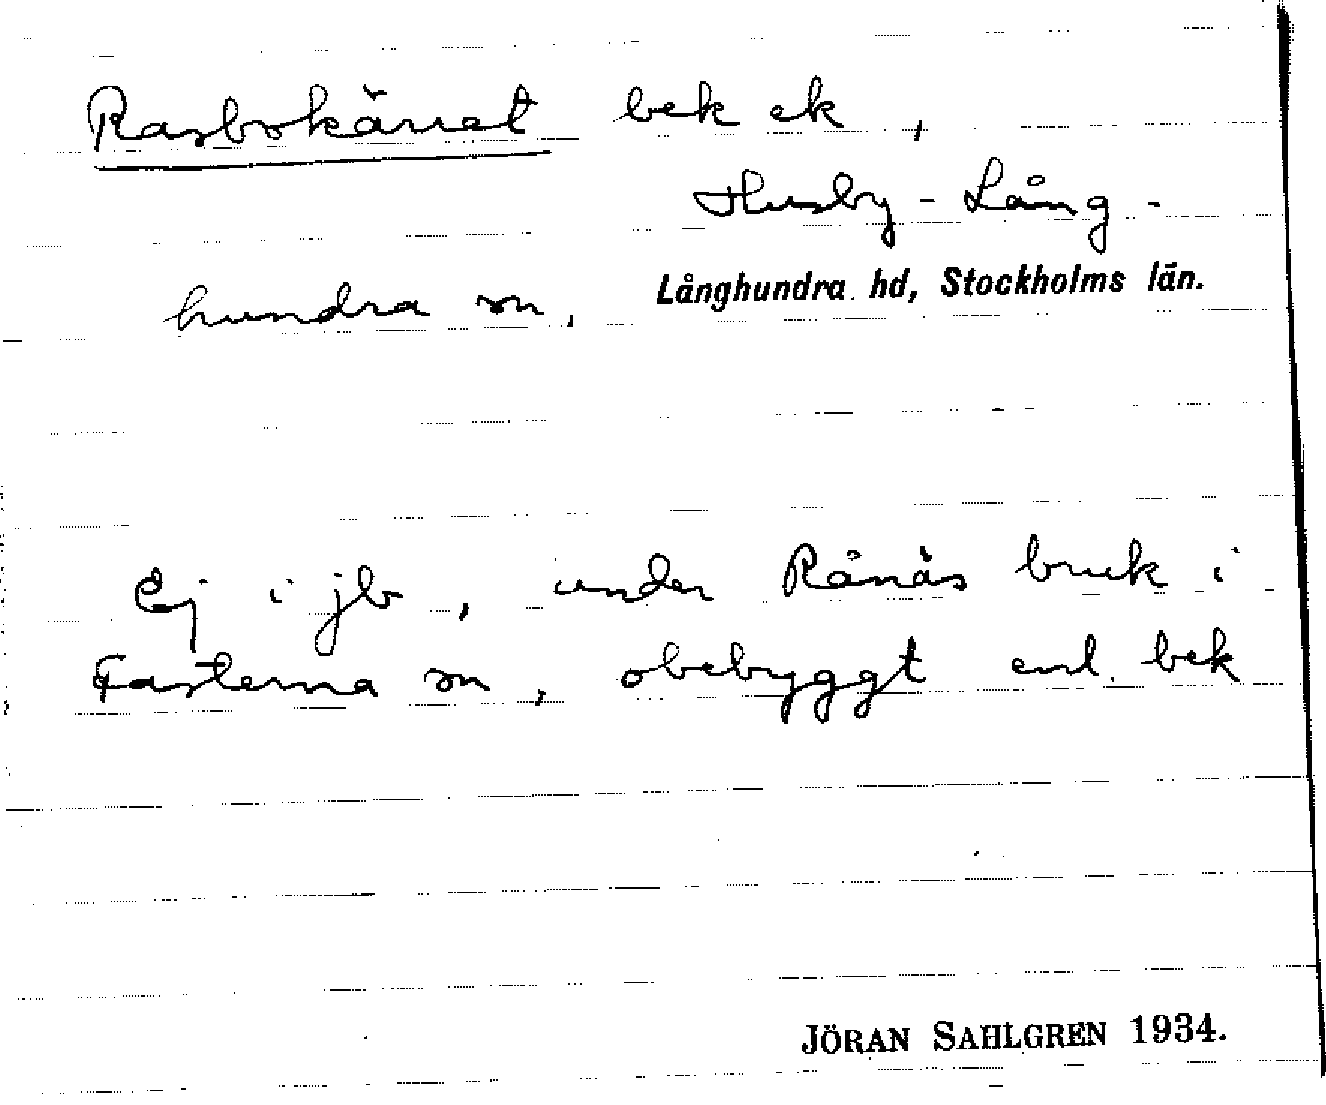 Rasbokärret bek ek,
Husby-Lång-
hundra sn,
Långhundra hd, Stockholms län.
Ej i jb, under Rånäs bruk i
Fasterna sn, obebyggt enl. bek
JÖRAN SAHLGREN 1934.